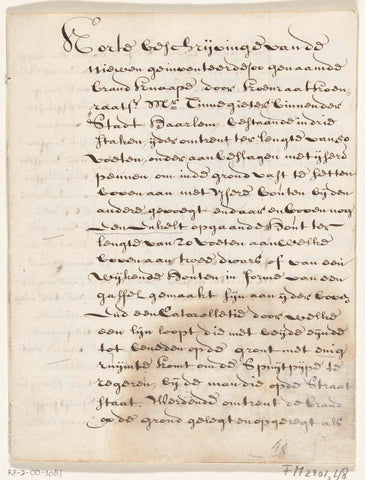 Korte beschrijvinge van de
nieuwen geinventeerde soo genaamde
brand knaape, door Koenraat Koen
raatsz Mr Tinnegieter binnen der
Stadt Haarlem bestaande in drie
staken ijder omtrent ter lengte van 50
voeten, onder aan beslagen met ijsere
pennen om inde grond vast te setten
boven aan met ijsere bouten bij den
andere gevoegt en daar en boven nog
een enkelt opgaande Hout ter
lengte van 20 voeten aan welke
boven aan twee dwars of van een
wijkende Houten in forme van een
gaffel gemaakt sijn aan ijder boven
eind een Catrolletie door welke
een lijn loopt die met beijde eijnde
tot beneden op de gront met enig
ruijmte komt om de Spuijtpijpe te
regeren bij de man die op de Straat
staat. Werdende omtrent de brand
op de grond gelegt en opgeregt als
48
RP-D-00-1081
FM 2301, 48